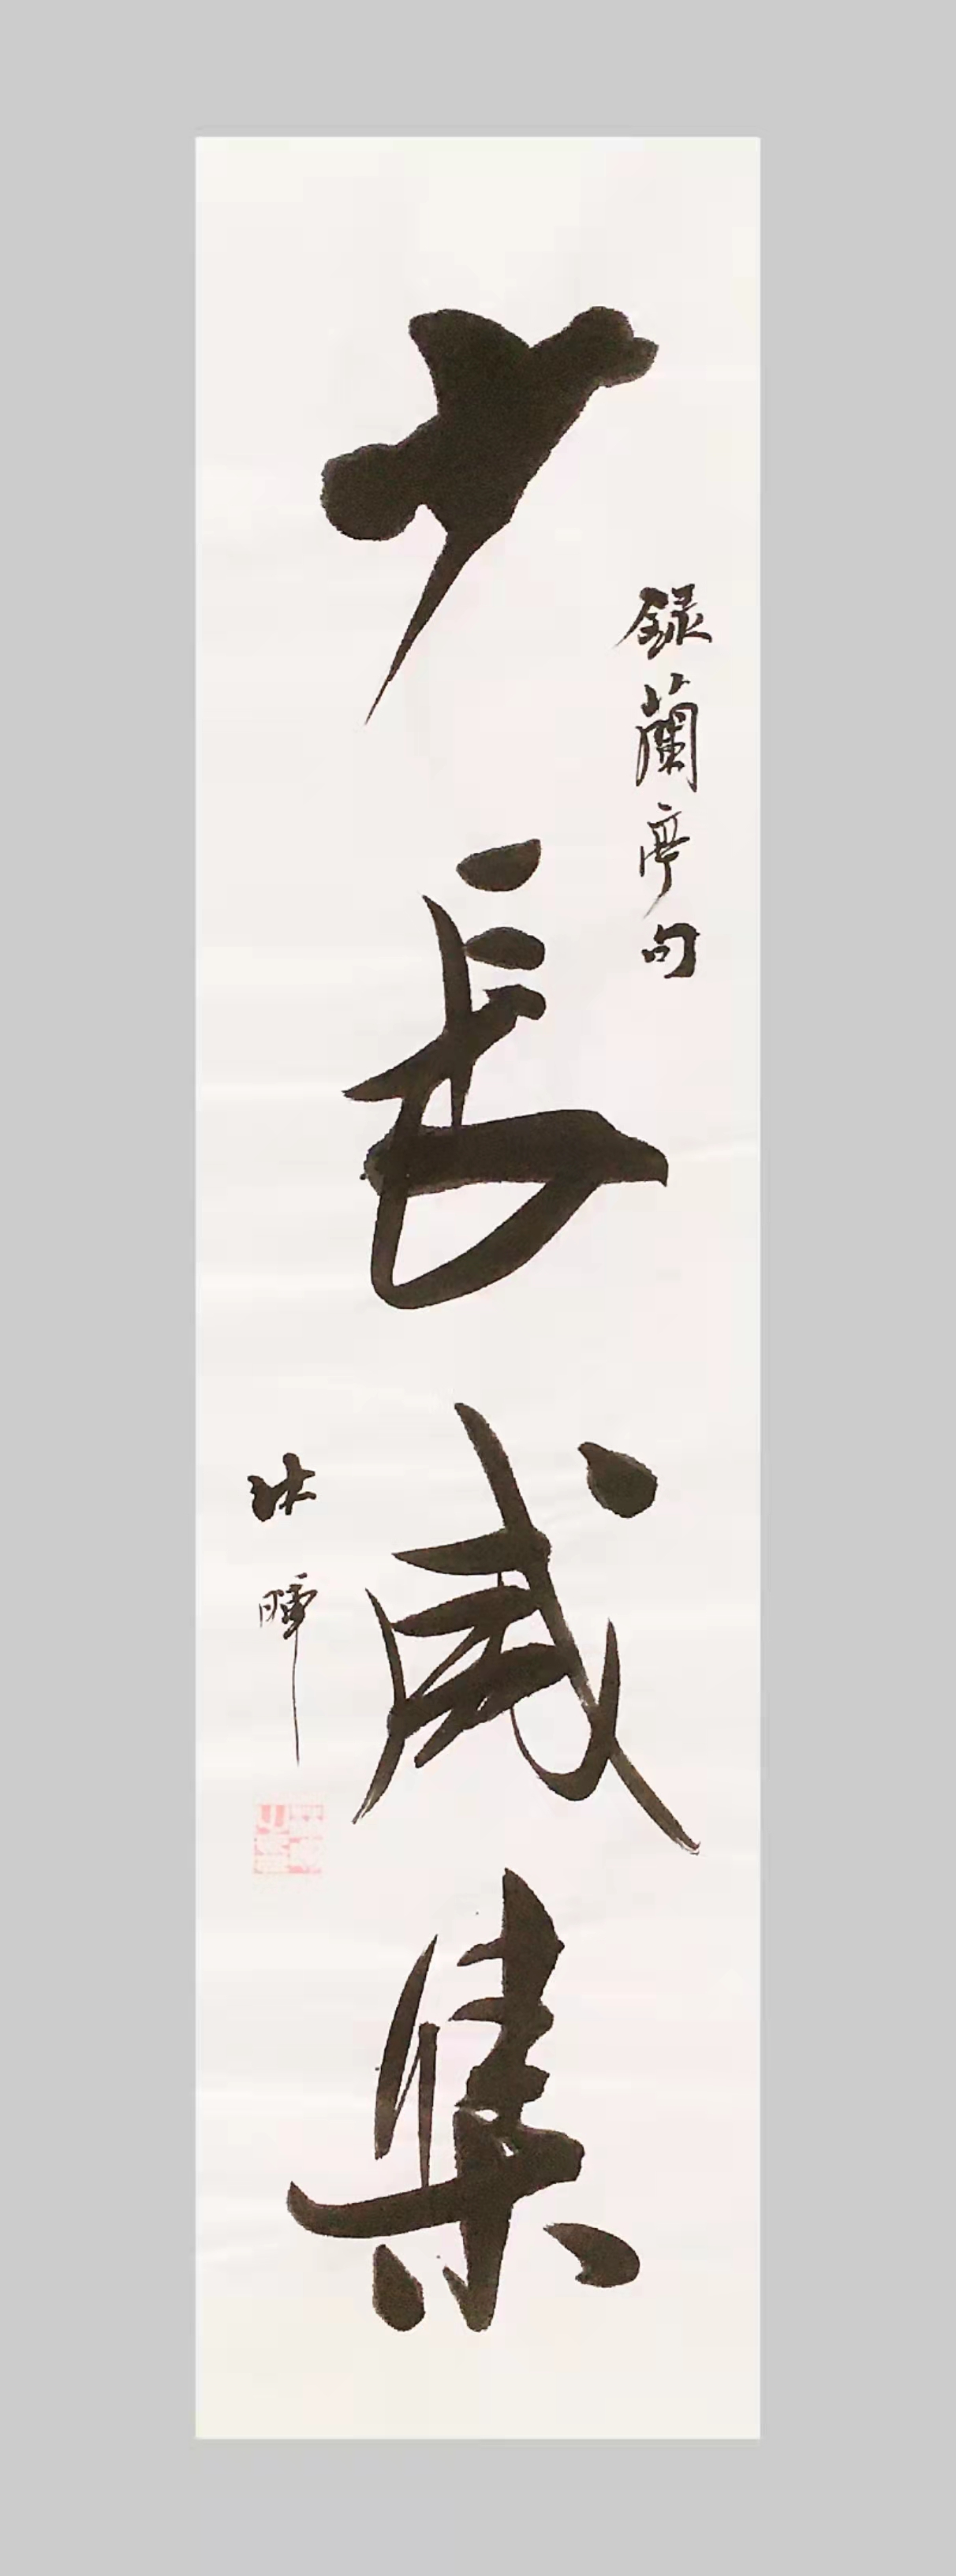 録蘭亭句
少長咸集
沐暉